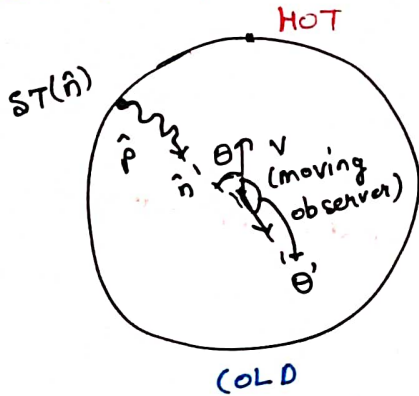 HOT
δT(n̂)
p̂
θ
v
n̂'
(moving
observer)
θ'
COLD